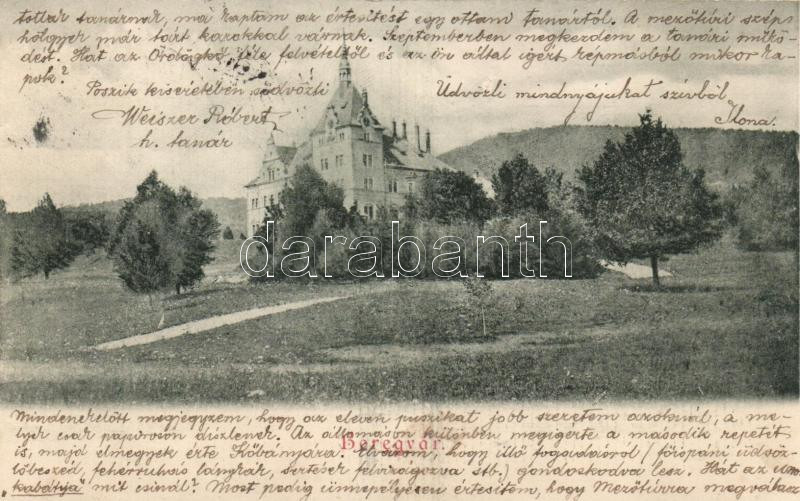 tottak tanárnak, ma kaptam az értesitést egy ottani tanártól. A mezőtúri szép
hölgyek már tárt karokkal várnak. Szeptemberben megkezdem a tanári műkö-
dést. Hát az Ördögkő féle felvételről és az ön által igért képmásból mikor ka-
pok?
Poszik kiséretében üdvözli
Üdvözli mindnyájukat szivből
Weiszer Róbert
Ilona.
h. tanár
darabanth
.com
Beregvár.
Mindenekelőtt megjegyzem, hogy az eleven puszikat jobb szeretem azoknál, a me-
lyek csak papiroson díszlenek. Az állomáson különben megigérte a második repetit
is, majd elmegyek érte Kőbányára. Elvárom, hogy illő fogadásról (főispáni üdvöz-
lőbeszéd, fehérruhás lánykák, sertések felvirágozva stb.) gondoskodva lesz. Hát az
kabátja" mit csinál? Most pedig ünnepélyesen értesítem, hogy Mezőtúrra megválasz